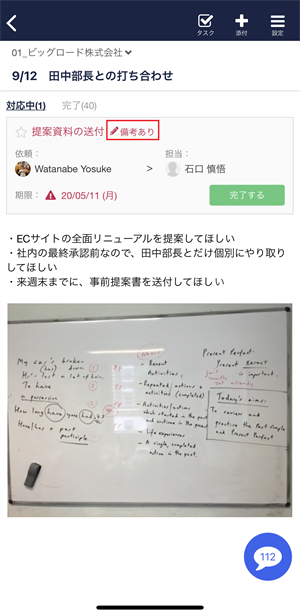 タスク
添付
設定
01_ビッグロード株式会社
9/12 田中部長との打ち合わせ
対応中(1) 完了(40)
提案資料の送付 備考あり
依頼： 担当：
Watanabe Yosuke > 石口 慎悟
期限： 20/05/11 (月) 完了する
・ECサイトの全面リニューアルを提案してほしい
・社内の最終承認前なので、田中部長とだけ個別にやり取り
してほしい
・来週末までに、事前提案書を送付してほしい
My car's broken
down
To have
a possessive
How long have you had
Have/has + past
participle
Recent
Activities
- Repeated actions +
activities (completed)
- Activities/actions
which started in the past
and continue in the past
- Life experiences
- A single, completed
action in the past.
Present Perfect:
Present Result
is important.
Today's aims:
To review and
practise the Past Simple
and Present Perfect
112